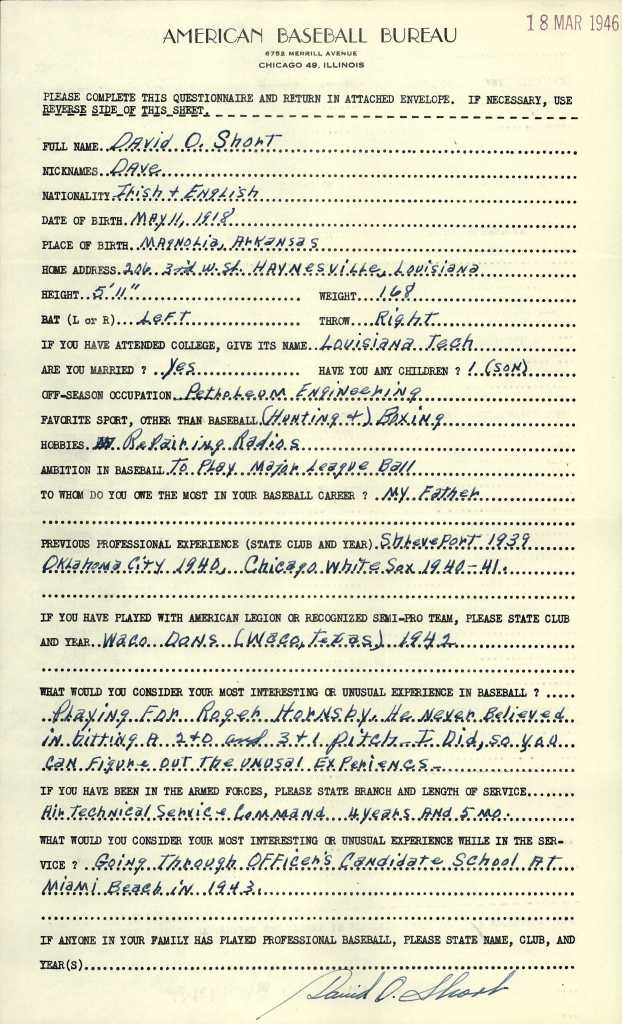 18 MAR 1946
AMERICAN BASEBALL BUREAU
6752 MERRILL AVENUE
CHICAGO 49, ILLINOIS
PLEASE COMPLETE THIS QUESTIONNAIRE AND RETURN IN ATTACHED ENVELOPE. IF NECESSARY, USE
REVERSE SIDE OF THIS SHEET.
FULL NAME David O. Short
NICKNAMES Dave
NATIONALITY Irish + English
DATE OF BIRTH May 11, 1918
PLACE OF BIRTH Magnolia, Arkansas
HOME ADDRESS 206 3rd W. St. Haynesville, Louisiana
HEIGHT 5' 11" WEIGHT 168
BAT (L or R) Left THROW Right
IF YOU HAVE ATTENDED COLLEGE, GIVE ITS NAME Louisiana Tech
ARE YOU MARRIED ? Yes HAVE YOU ANY CHILDREN ? 1 (son)
OFF-SEASON OCCUPATION Petroleum Engineering
FAVORITE SPORT, OTHER THAN BASEBALL (Hunting +) Boxing
HOBBIES Repairing Radios
AMBITION IN BASEBALL To Play Major League Ball
TO WHOM DO YOU OWE THE MOST IN YOUR BASEBALL CAREER ? My Father
PREVIOUS PROFESSIONAL EXPERIENCE (STATE CLUB AND YEAR) Shreveport 1939
Oklahoma City 1940, Chicago White Sox 1940-41.
IF YOU HAVE PLAYED WITH AMERICAN LEGION OR RECOGNIZED SEMI-PRO TEAM, PLEASE STATE CLUB
AND YEAR Waco Dons (Waco, Texas) 1942
WHAT WOULD YOU CONSIDER YOUR MOST INTERESTING OR UNUSUAL EXPERIENCE IN BASEBALL ?
Playing For Roger Hornsby. He never Believed
in hitting a 2+0 and 3+1 pitch - I Did, so you
can figure out the unusal experience -
IF YOU HAVE BEEN IN THE ARMED FORCES, PLEASE STATE BRANCH AND LENGTH OF SERVICE
Air Technical Service Command 4 years and 5 mo.
WHAT WOULD YOU CONSIDER YOUR MOST INTERESTING OR UNUSUAL EXPERIENCE WHILE IN THE SER-
VICE ? Going Through Officer's Candidate School at
Miami Beach in 1943.
IF ANYONE IN YOUR FAMILY HAS PLAYED PROFESSIONAL BASEBALL, PLEASE STATE NAME, CLUB, AND
YEAR(S)
David O. Short